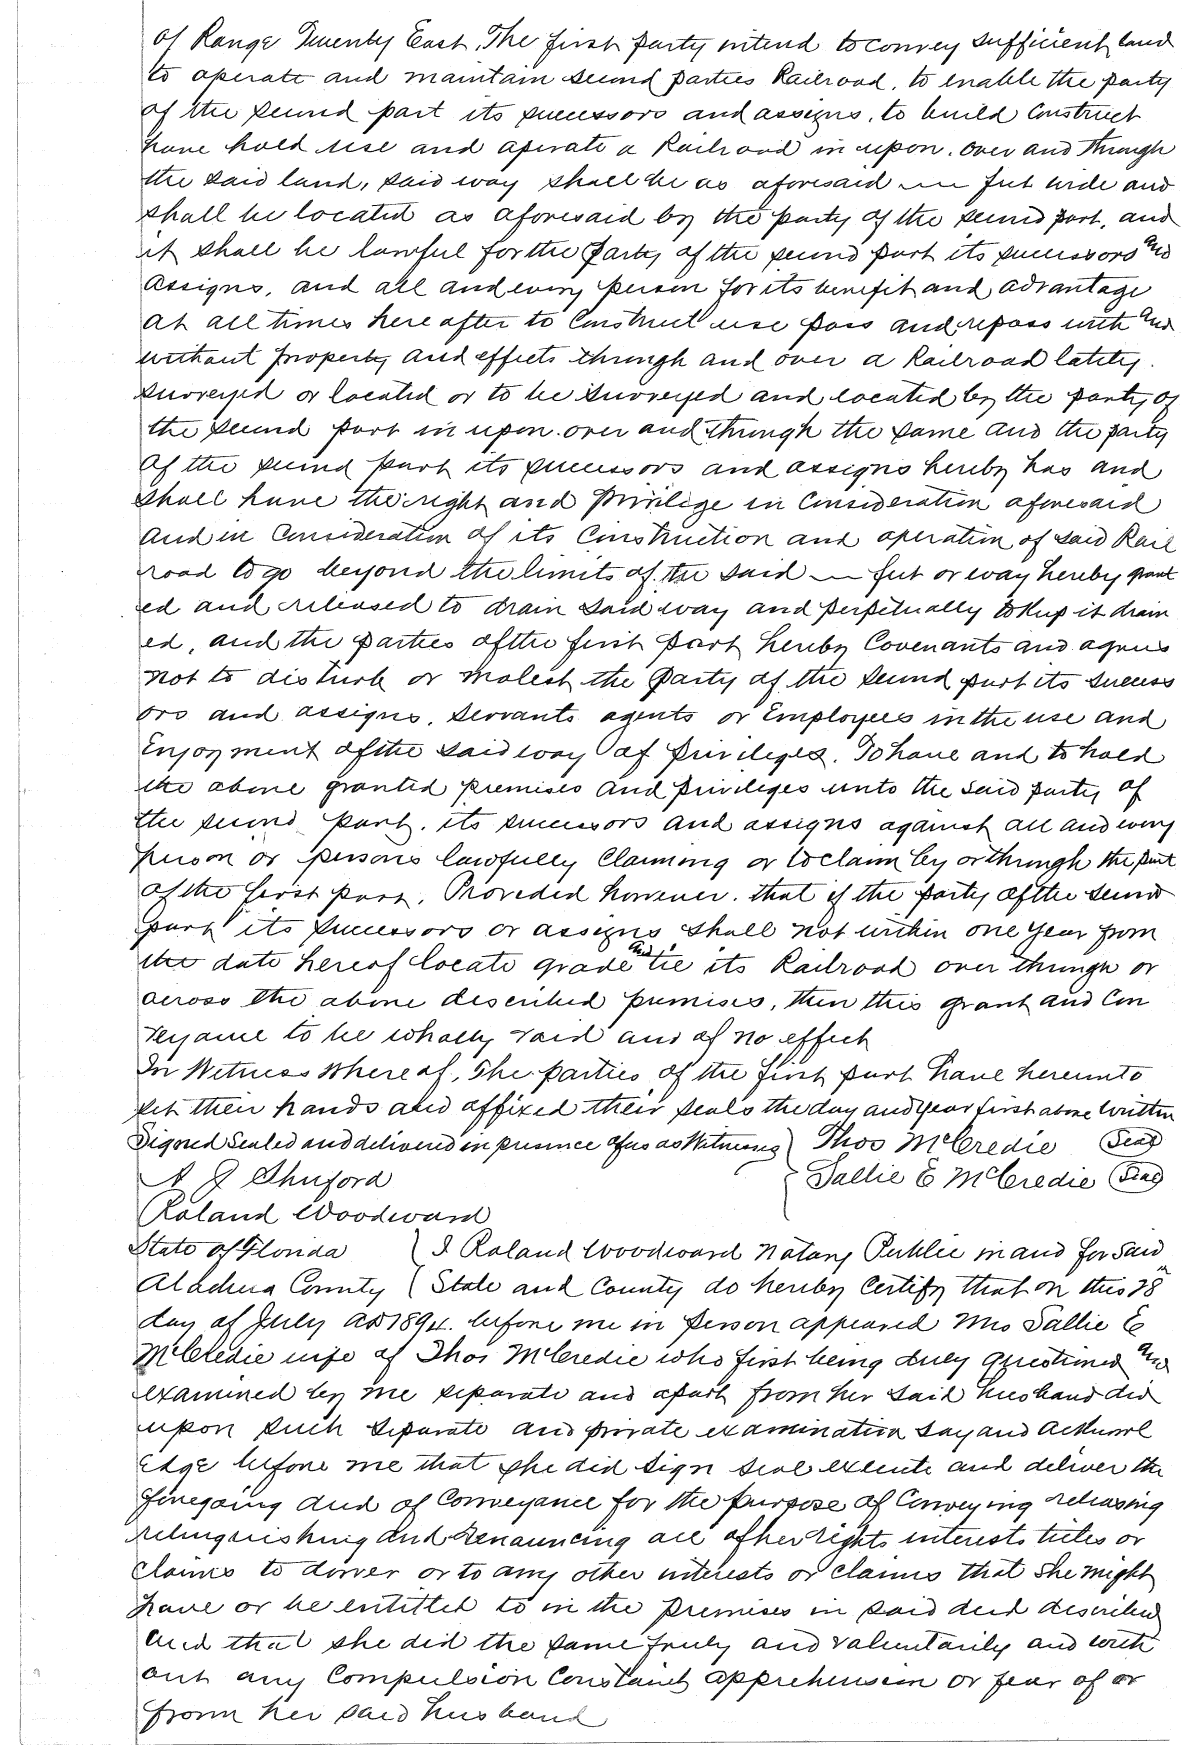 of Range Twenty East, The first party intend to convey sufficient land
to operate and maintain second parties Railroad, to enable the party
of the second part its successors and assigns, to build Construct
have hold use and operate a Railroad in upon. over and through
the said land, said way shall be as aforesaid — feet wide and
shall be located as aforesaid by the party of the second part, and
it shall be lawful for the Party of the second part its successors and
assigns, and all and every person for its benefit and advantage
at all times hereafter to Construct use pass and repass with and
without property and effects through and over a Railroad lately.
surveyed or located or to be surveyed and located by the party of
the second part in upon. over and through the same and the party
of the second part its successors and assigns hereby has and
shall have the right and privilege in Consideration aforesaid
and in Consideration of its Construction and operation of said Rail
road to go beyond the limits of the said — feet or way hereby grant
ed and released to drain said way and perpetually to keep it drain
ed, and the parties of the first part hereby Covenants and agrees
not to disturb or molest the party of the second part its success
ors and assigns, servants agents or Employees in the use and
Enjoyment of the said way of privileges. To have and to hold
the above granted premises and privileges unto the said party of
the second part. its successors and assigns against all and every
person or persons lawfully Claiming or to claim by or through the part
of the first part, Provided however. that if the party of the second
part its successors or assigns shall not within one year from
the date hereof locate grade and tie its Railroad over through or
across the above described premises, then this grant and Con
veyance to be wholly void and of no effect
In Witness Whereof, The parties of the first part have hereunto
set their hands and affixed their seals the day and year first above written
Signed Sealed and delivered in presence of us as Witnesses } Thos McCredie (Seal)
A J Shuford } Sallie E McCredie (Seal)
Roland Woodward
State of Florida } I Roland Woodward Notary Public in and for said
Alachua County } State and County do hereby Certify that on this 28"
day of July AD 1894. before me in person appeared Mrs Sallie E
McCredie wife of Thos McCredie who first being duly Questioned and
examined by me separate and apart from her said husband did
upon such separate and private examination say and acknowl
edge before me that she did sign seal execute and deliver the
foregoing deed of Conveyance for the purpose of Conveying releasing
relinquishing and renouncing all of her rights interests titles or
claims to dower or to any other interests or claims that she might
have or be entitled to in the premises in said deed described
and that she did the same freely and voluntarily and with
out any Compulsion Constraint apprehension or fear of or
from her said husband